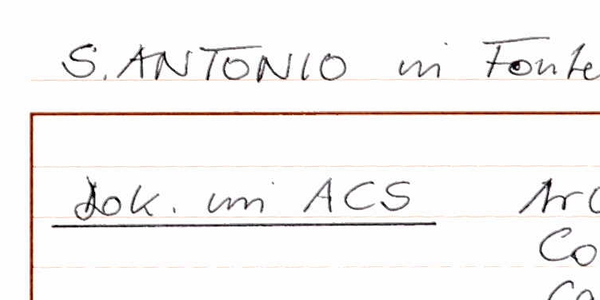 S. ANTONIO in Fonte
Dok. im ACS Arc
Co